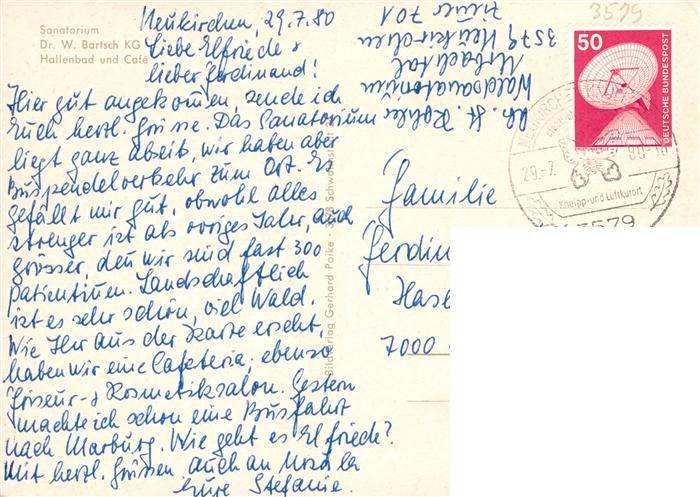 Sanatorium
Dr. W. Bartsch KG
Hallenbad und Café
Neukirchen, 29.7.80
Liebe Elfriede &
lieber Ferdinand!
Hier gut angekommen, sende ich
Euch herzl. Grüsse. Das Sanatorium
liegt ganz abseit, wir haben aber
Buspendelverkehr zum Ort. Es
gefällt mir gut, obwohl alles
strenger ist als voriges Jahr, auch
grösser, den wir sind fast 300
Patientinnen. Landschaftlich
ist es sehr schön, viel Wald.
Wie Ihr aus der Karte erseht,
haben wir eine Cafeteria, ebenso
Friseur- & Kosmetiksalon. Gestern
machte ich schon eine Busfahrt
nach Marburg. Wie geht es Elfriede?
Mit herzl. Grüssen auch an
Eure Stefanie.
Abs. St. Köhler
Waldsanatorium
Urbachtal
3579 Neukirchen
Zimmer 701
Bildverlag Gerhard Poike
3579
50
DEUTSCHE BUNDESPOST
29.-7. 80-
Kneipp- und Luftkurort
3579
Familie
Ferdin
Hasel
7000